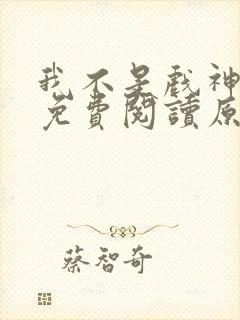 我不是戲神
免費閱讀原
蔡智奇